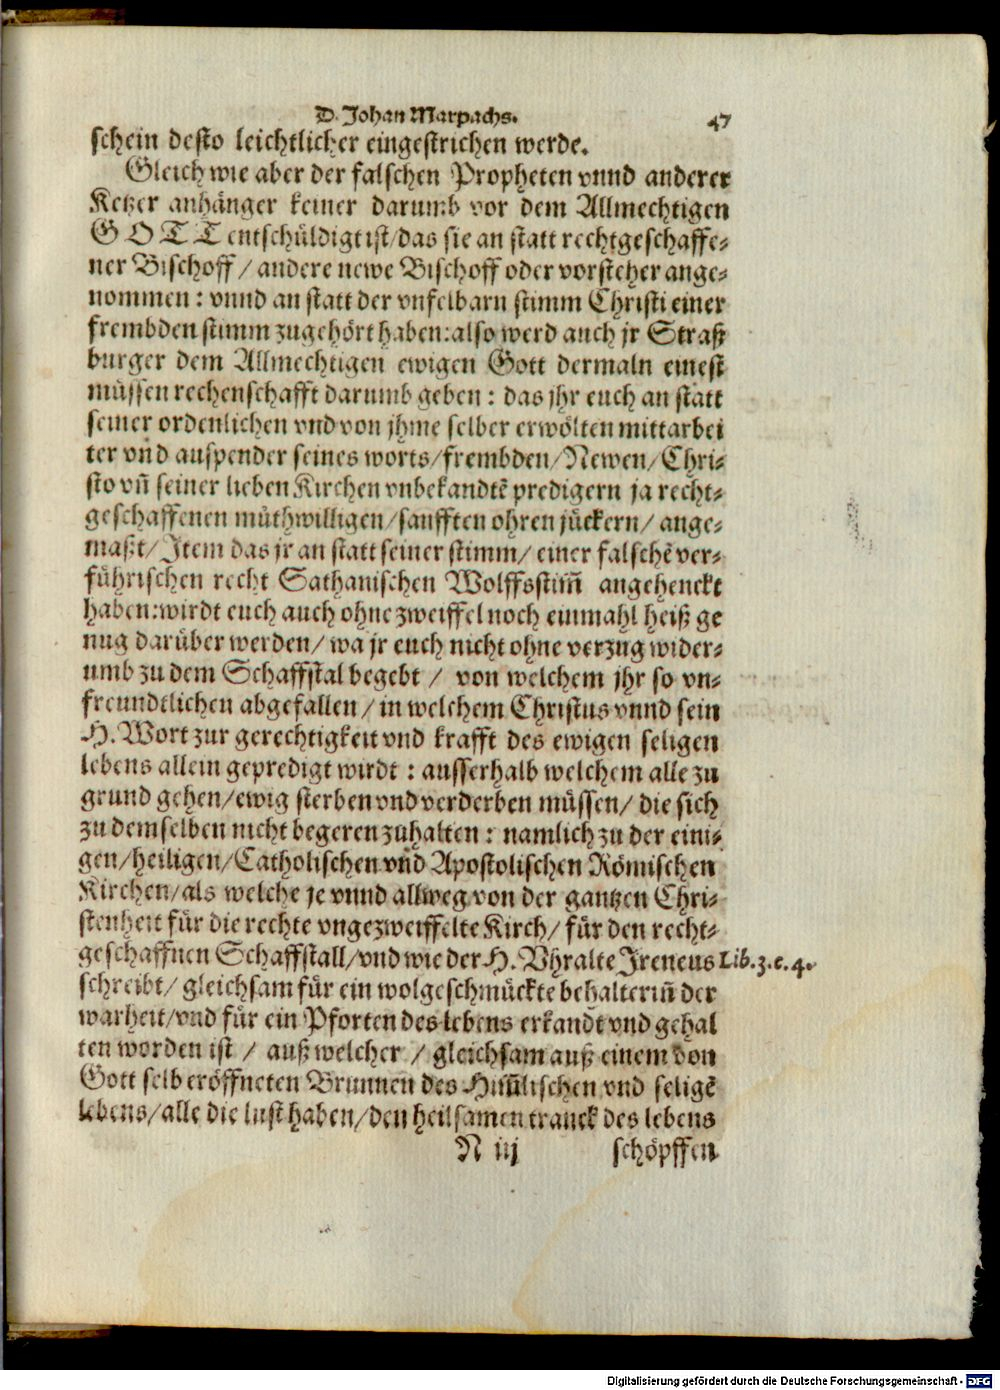 D. Johan Marpachs. 47
schein desto leichtlicher eingestrichen werde.
Gleich wie aber der falschen Propheten vnnd anderer
Ketzer anhänger keiner darumb vor dem Allmechtigen
GOTT entschüldigt ist/das sie an statt rechtgeschaffe⸗
ner Bischoff/ andere newe Bischoff oder vorsteher ange⸗
nommen: vnnd an statt der vnfelbarn stimm Christi einer
frembden stimm zugehört haben: also werd auch jr Straß
burger dem Allmechtigen ewigen Gott dermaln einest
müssen rechenschafft darumb geben: das jhr euch an statt
seiner ordenlichen vnd von jhme selber erwölten mittarbei
ter vñd auspender seines worts/frembden/Newen/Chri⸗
sto vñ seiner lieben Kirchen vnbekandtē predigern ja recht⸗
geschaffenen müthwilligen/saufften ohren jückern/ ange⸗
maßt/Item das jr an statt seiner stimm/ einer falschē ver⸗
führischen recht Sathanischen Wolffsstim̃ angehenckt
haben: wirdt euch auch ohne zweiffel noch einmahl heiß ge
nug darüber werden/ wa jr euch nicht ohne verzug wider⸗
umb zu dem Schaffstal begebt / von welchem jhr so vn⸗
freundtlichen abgefallen/ in welchem Christus vnnd sein
H. Wort zur gerechtigkeit vnd krafft des ewigen seligen
lebens allein gepredigt wirdt: ausserhalb welchem alle zu
grund gehen/ewig sterben vnd verderben müssen/ die sich
zu demselben nicht begeren zuhalten: namlich zu der eini⸗
gen/heiligen/Catholischen vñd Apostolischen Römischen
Kirchen/als welche je vnnd allweg von der gantzen Chri⸗
stenheit für die rechte vngezweiffelte Kirch/ für den recht⸗
geschaffnen Schaffstall/vnd wie der H. Vhralte Ireneus Lib. 3. c. 4.
schreibt/ gleichsam für ein wolgeschmückte behalterin̄ der
warheit/vnd für ein Pforten des lebens erkandt vnd gehal
ten worden ist / auß welcher / gleichsam auß einem von
Gott selb eröffneten Brunnen des Him̃lischen vnd seligē
lebens/alle die lust haben/den heilsamen tranck des lebens
N iij schöpffen
Digitalisierung gefördert durch die Deutsche Forschungsgemeinschaft - DFG